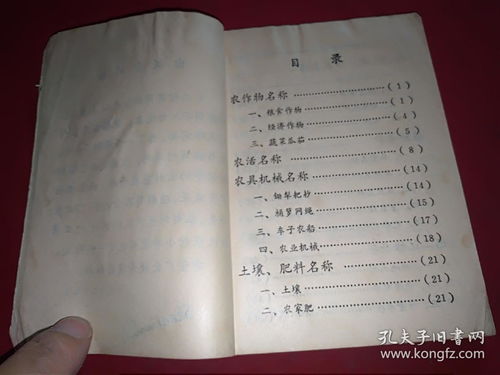 目 录
农作物名称………………………(1)
一、粮食作物………………………(1)
二、经济作物………………………(4)
三、蔬菜瓜茄………………………(5)
农活名称………………………(8)
农具机械名称………………………(14)
一、锄犁耙抄………………………(14)
二、桶箩网绳………………………(15)
三、车子农船………………………(17)
四、农业机械………………………(18)
土壤、肥料名称………………………(21)
一、土壤………………………(21)
二、农家肥………………………(21)
孔夫子旧书网
www.kongfz.com